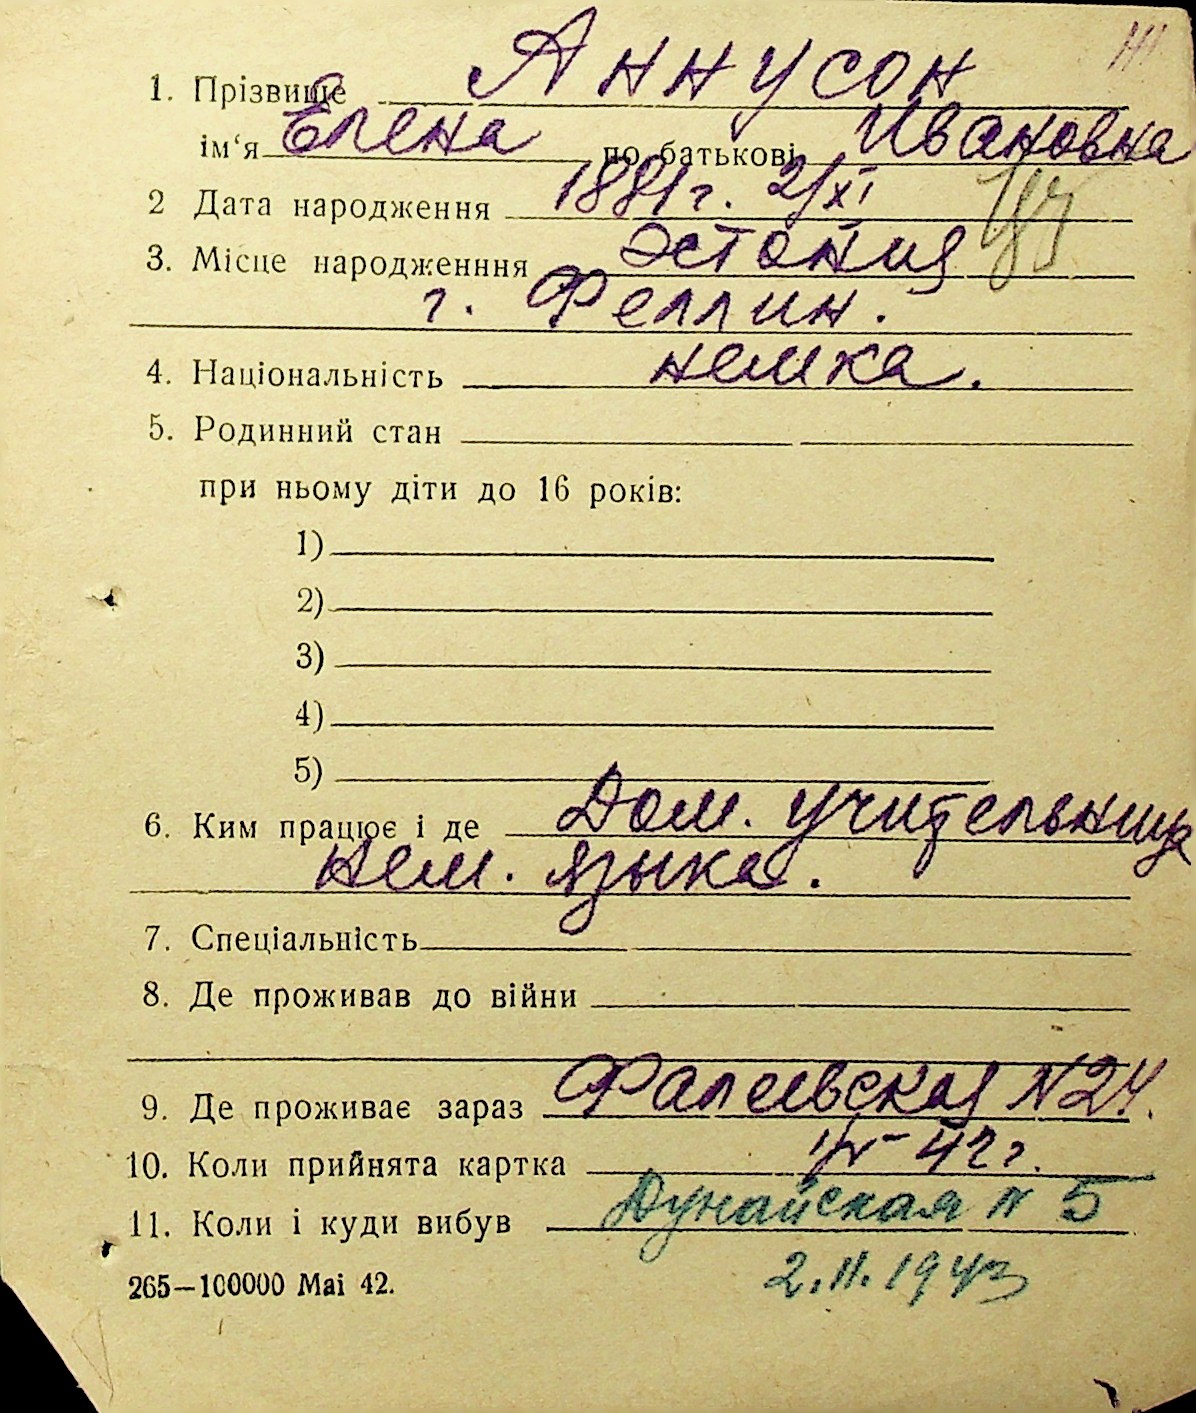 1. Прізвище Аннусон
ім‘я Елена по батькові Ивановна
2 Дата народження 1881 г. 2/XI
3. Місце народженння Эстония
г. Феллин.
4. Національність немка.
5. Родинний стан
при ньому діти до 16 років:
1)
2)
3)
4)
5)
6. Ким працює і де Дом. учительница
нем. языка.
7. Спеціальність
8. Де проживав до війни
9. Де проживає зараз Фалеевская N 24.
10. Коли прийнята картка 42 г.
11. Коли і куди вибув Дунайская N 5
2.II.1943
265—100000 Mai 42.